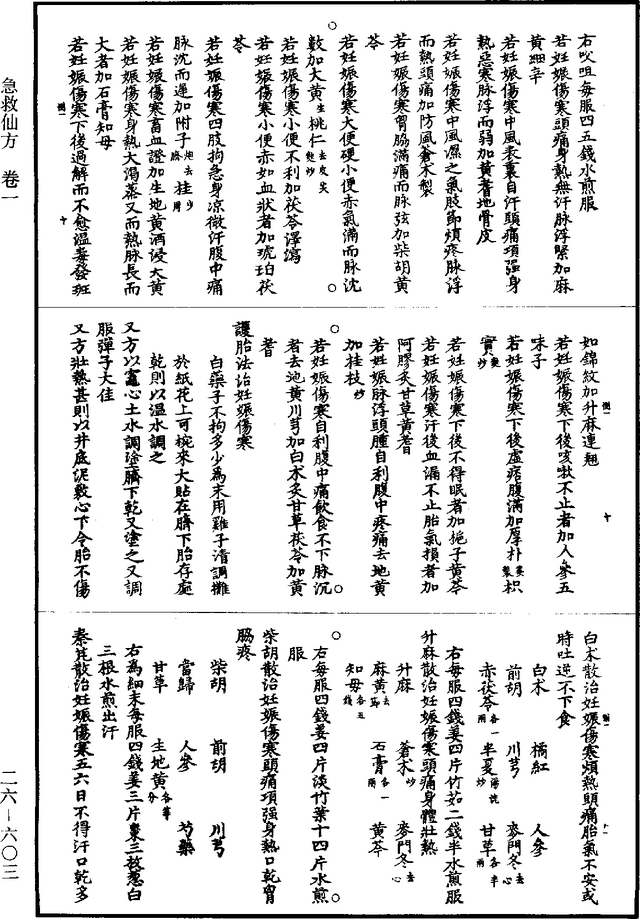 急救仙方 卷一
右㕮咀每服四五錢水煎服
若妊娠傷寒頭痛身熱無汗脉浮緊加麻
黄細辛
若妊娠傷寒中風表裏自汗頭痛項强身
熱惡寒脉浮而弱加黄耆地骨皮
若妊娠傷寒中風濕之氣肢節煩疼脉浮
而熱頭痛加防風蒼术製
若妊娠傷寒胷脇滿痛而脉弦加柴胡黄
芩
若妊娠傷寒大便硬小便赤氣滿而脉沈
數加大黄生桃仁去皮尖麩炒
若妊娠傷寒小便不利加茯苓澤瀉
若妊娠傷寒小便赤如血狀者加琥珀茯
苓
若妊娠傷寒四肢拘急身凉微汗腹中痛
脉沈而遲加附子炮去臍桂少用
若妊娠傷寒畜血證加生地黄酒浸大黄
若妊娠傷寒身熱大渴蒸又而熱脉長而
大者加石膏知母
若妊娠傷寒下後過解而不愈溫毒發斑
如錦紋加升麻連翹
若妊娠傷寒下後咳嗽不止者加人參五
味子
若妊娠傷寒下後虛痞腹滿加厚朴薑製枳
實麩炒
若妊娠傷寒下後不得眠者加梔子黄芩
若妊娠傷寒汗後血漏不止胎氣損者加
阿膠炙甘草黄耆
若妊娠脉浮頭腫自利腹中疼痛去地黄
加桂枝炒
若妊娠傷寒自利腹中痛飲食不下脉沉
者去地黄川芎加白术炙甘草茯苓加黄
耆
護胎法治妊娠傷寒
白藥子不拘多少爲末用雞子清調攤
於紙花上可椀來大貼在臍下胎存處
乾則以温水調之
又方以竈心土水調塗臍下乾又塗之又調
服彈子大佳
又方壯熱甚則以井底泥敷心下令胎不傷
白术散治妊娠傷寒煩熱頭痛胎氣不安或
時吐逆不下食
白术 橘紅 人參
前胡 川芎 麥門冬去心
赤茯苓各一兩 半夏湯洗炒 甘草各半兩
右每服四錢薑四片竹茹二錢半水煎服
升麻散治妊娠傷寒頭痛身體壯熱
升麻 蒼术炒 麥門冬去心
麻黄去節 石膏各一兩 黄芩
知母各五錢
右每服四錢薑四片淡竹葉十四片水煎
服
柴胡散治妊娠傷寒頭痛項强身熱口乾胷
脇疼
柴胡 前胡 川芎
當歸 人參 芍藥
甘草 生地黄各等分
右爲細末每服四錢薑三片棗三枚葱白
三根水煎出汗
秦芃散治妊娠傷寒五六日不得汗口乾多
二六－六〇三